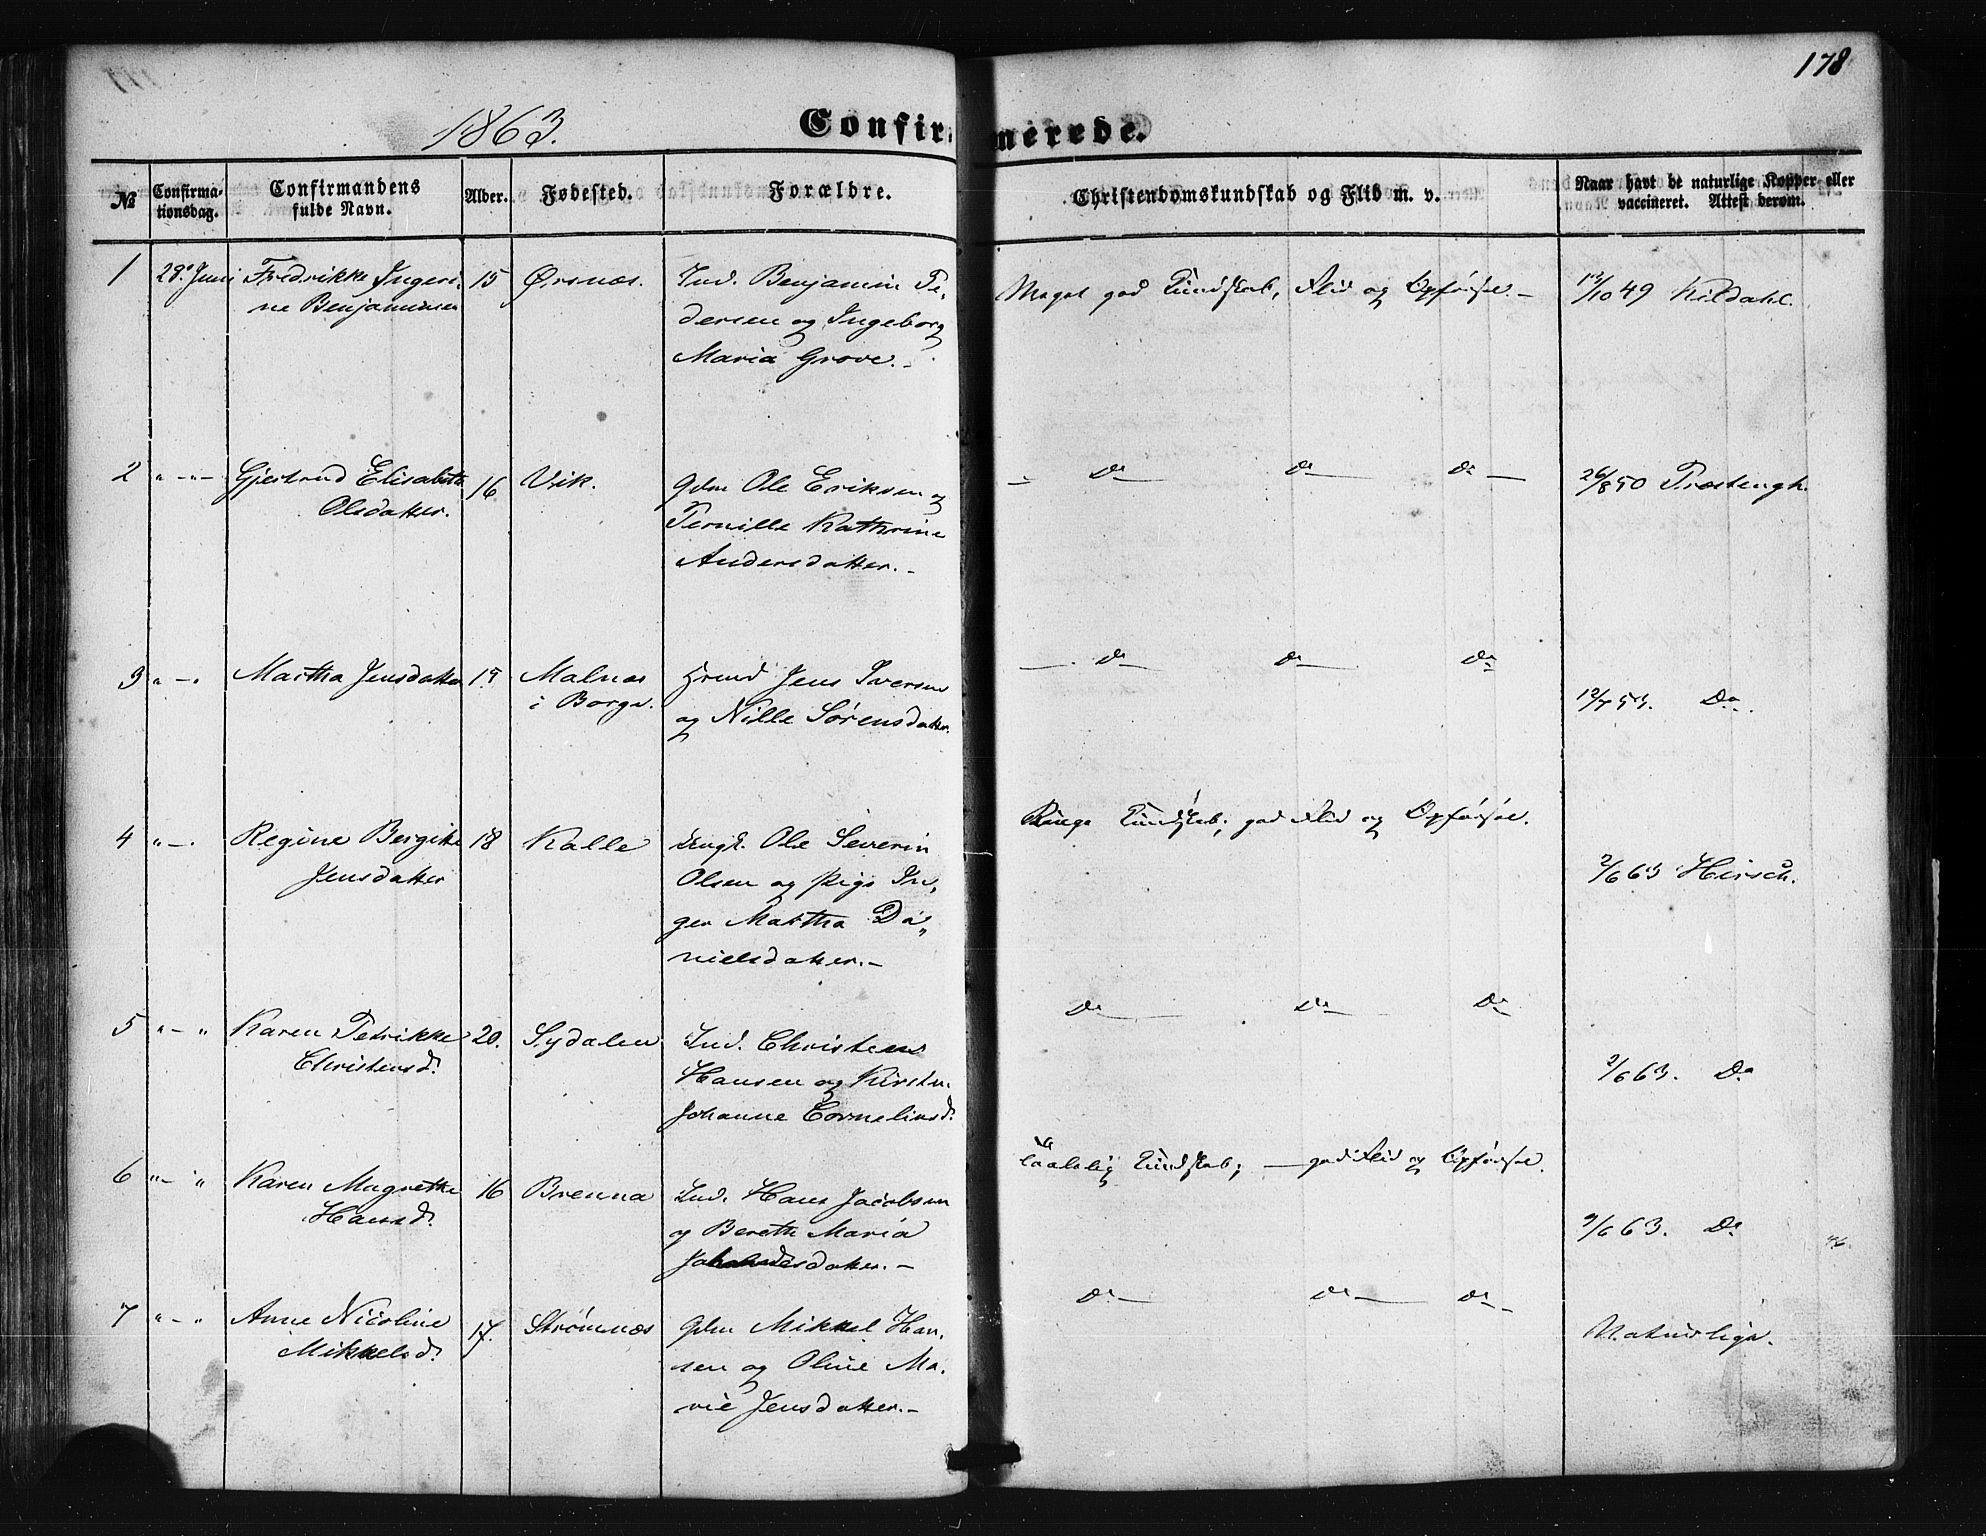 178
1863. Confirmerede.
№ Confirma-tionsdag. Confirmandens fulde Navn. Alder. Fødested. Forældre. Christendomskundskab og Flid m. v. Naar havt de naturlige Kopper eller vaccineret. Attest derom.
1 28. Juni Fredrikke Ingeri- 15 Ørsnæs. Ind. Benjamin Pe- Meget god Kundskab, Flid og Opførsel. – 13/10 49 Kildahl.
ne Benjaminsen dersen og Ingeborg
Maria Grove. –
2 " – " – Gjertrud Elisabeth 16 Vik. Gdm Ole Eriksen og – Do – Do – Do – 26/8 50 Præstengh.
Olsdatter. Pernille Kathrine
Andersdatter. –
3 " – " Martha Jensdatter 19. Malnæs Jens Iversen – Do – Do – Do 12/7 53. Do.
i Borge. og Nille Sørensdatter.
4 " – . Regine Bergitte 18 Kalle Ungk. Ole Severin Ringe Kundskab; god Flid og Opførsel. 2/6 63 Hirsch.
Jensdatter Olsen og Pige In-
ger Martha Da-
nielsdatter. –
5 " – " Karen Petrikke 20. Sydalen Ind. Christen Do – Do – Do – 2/6 63. Do
Christensd. Hansen og Kirsten
Johanne Corneliusd.
6 " – " Karen Magrethe 16 Brenna Ind. Hans Jacobsen Taalelig Kundskab; – god Flid og Opførsel. 9/6 63. Do
Hansd. og Berethe Maria
datter. –
7 " – " Anne Nicoline 17. Strømnæs Gdm Mikkel Han- Do – Do – Do – Naturlige.
Mikkelsd. sen og Oline Ma-
rie Jensdatter. –